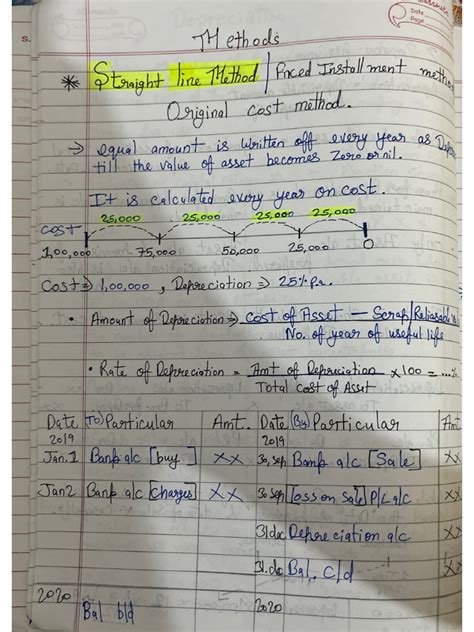 Date
Page
Methods
* Straight line Method / Fixed Installment method
Original cost method.
→ equal amount is written off every year as Depre
till the value of asset becomes zero or nil.
It is calculated every year on cost.
25,000 25,000 25,000 25,000
cost
1,00,000 75,000 50,000 25,000 0
Cost ⇒ 1,00,000 , Depreciation ⇒ 25% p.a.
• Amount of Depreciation ⇒ Cost of Asset — Scrap/Reliasable
No. of year of useful life
• Rate of Depreciation = Amt of Depreciation × 100 = ...%
Total cost of Asset
Date (To) Particular Amt. Date (By) Particular Amt
2019 2019
Jan.1 Bank a/c [buy] xx 30, sep Bank a/c [Sale] xx
Jan2 Bank a/c [charges] xx 30 sep [loss on sale] P/L a/c xx
31 dec Depreciation a/c xx
31. dec Bal. c/d xx
2020 2020
Bal b/d